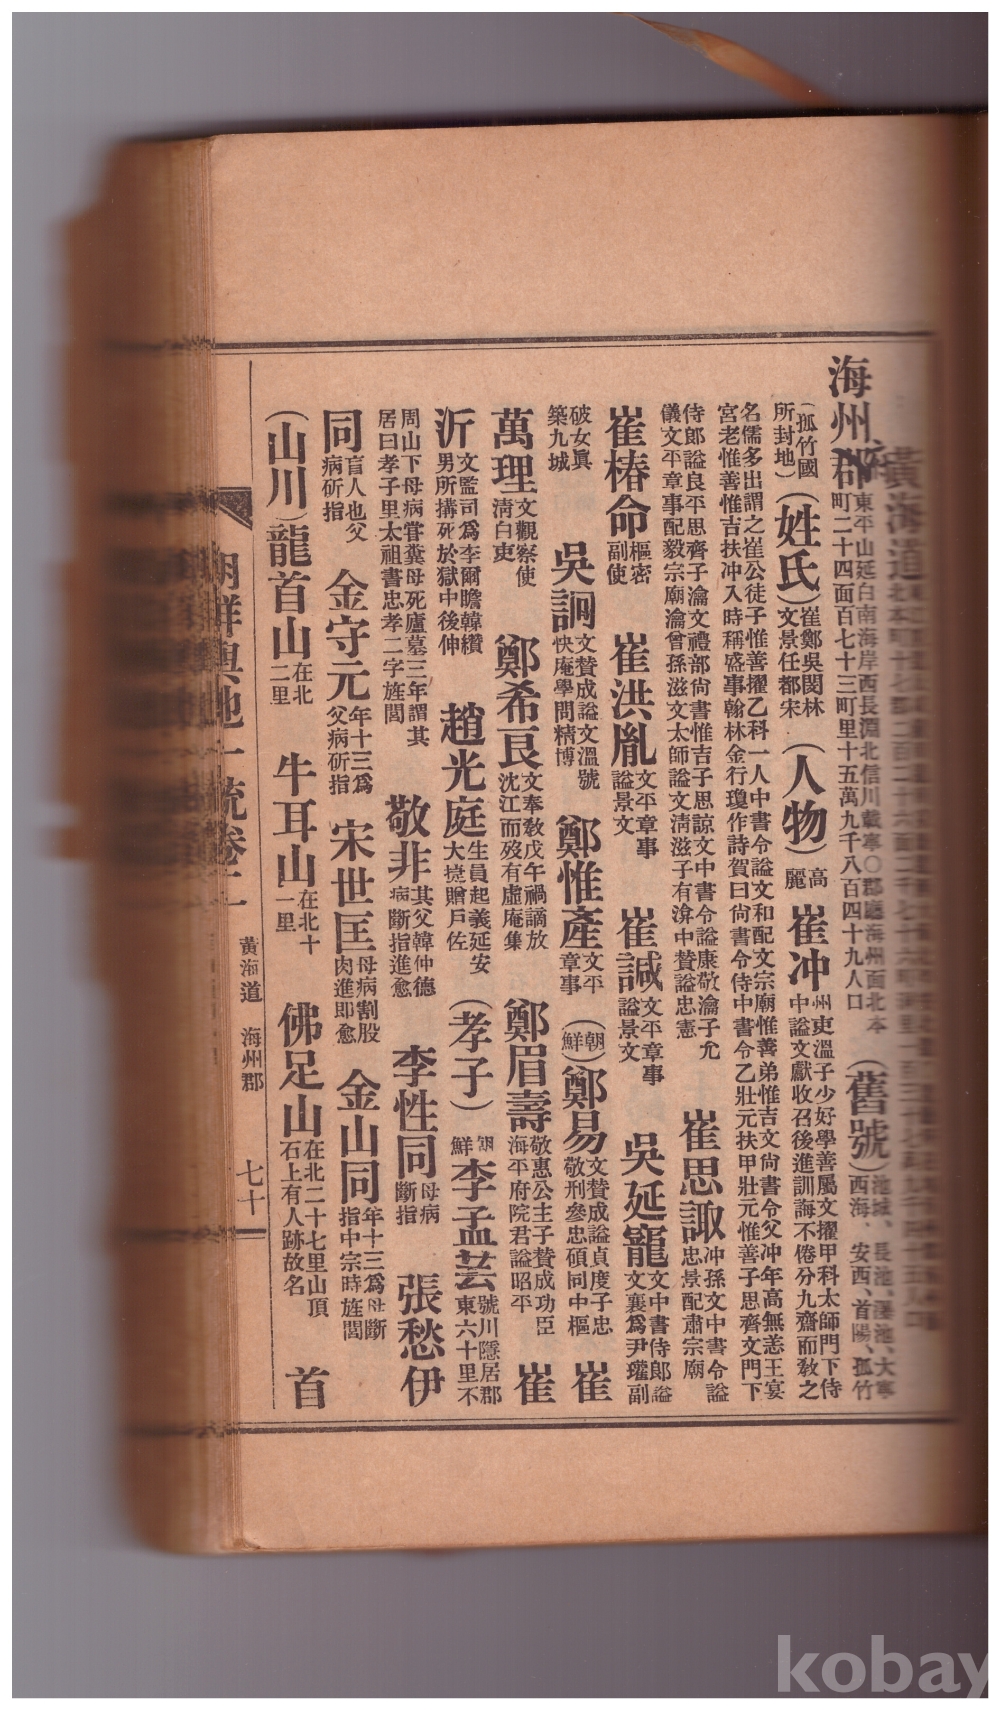 黃海道
海州郡 東平山延白南海岸西長淵北信川載寧〇郡廳海州面北本町二十四面百七十三町里十五萬九千八百四十九人口 (舊號) 池城、長池、瀑池、大寧西海、安西、首陽、孤竹
(孤竹國所封地) (姓氏) 崔鄭吳閔林文景任都宋 (人物) 高麗 崔冲 州吏溫子少好學善屬文擢甲科太師門下侍中謚文獻收召後進訓誨不倦分九齋而敎之
名儒多出謂之崔公徒子惟善擢乙科一人中書令謚文和配文宗廟惟善弟惟吉文尙書令父冲年高無恙王宴宮老惟善惟吉扶冲入時稱盛事翰林金行瓊作詩賀曰尙書令侍中書令乙壯元扶甲壯元惟善子思齊文門下
侍郞謚良平思齊子瀹文禮部尙書惟吉子思諒文中書令謚康敬瀹子允儀文平章事配毅宗廟瀹曾孫滋文太師謚文淸滋子有渰中贊謚忠憲 崔思諏 冲孫文中書令謚忠景配肅宗廟
崔椿命 樞密副使 崔洪胤 文平章事謚景文 崔諴 文平章事謚景文 吳延寵 文中書侍郞謚文襄爲尹瓘副
破女眞築九城 吳詗 文贊成謚文溫號快庵學問精博 鄭惟產 文平章事 (朝鮮) 鄭易 文贊成謚貞度子忠敬刑參忠碩同中樞 崔
萬理 文觀察使淸白吏 鄭希良 文奉敎戊午禍謫放沈江而歿有虛庵集 鄭眉壽 敬惠公主子贊成功臣海平府院君謚昭平 崔
沂 文監司爲李爾瞻韓纘男所搆死於獄中後伸 趙光庭 生員起義延安大捷贈戶佐 (孝子) 朝鮮 李孟芸 號川隱居郡東六十里不
周山下母病嘗糞母死廬墓三年謂其居曰孝子里太祖書忠孝二字旌閭 敬非 其父韓仲德病斷指進愈 李性同 母病斷指 張愁伊
同 盲人也父病斫指 金守元 年十三爲父病斫指 宋世匡 母病割股肉進卽愈 金山同 年十三爲母斷指中宗時旌閭
(山川) 龍首山 在北二里 牛耳山 在北十一里 佛足山 在北二十七里山頂石上有人跡故名 首
朝鮮輿地一統卷二 黃海道 海州郡 七十
kobay